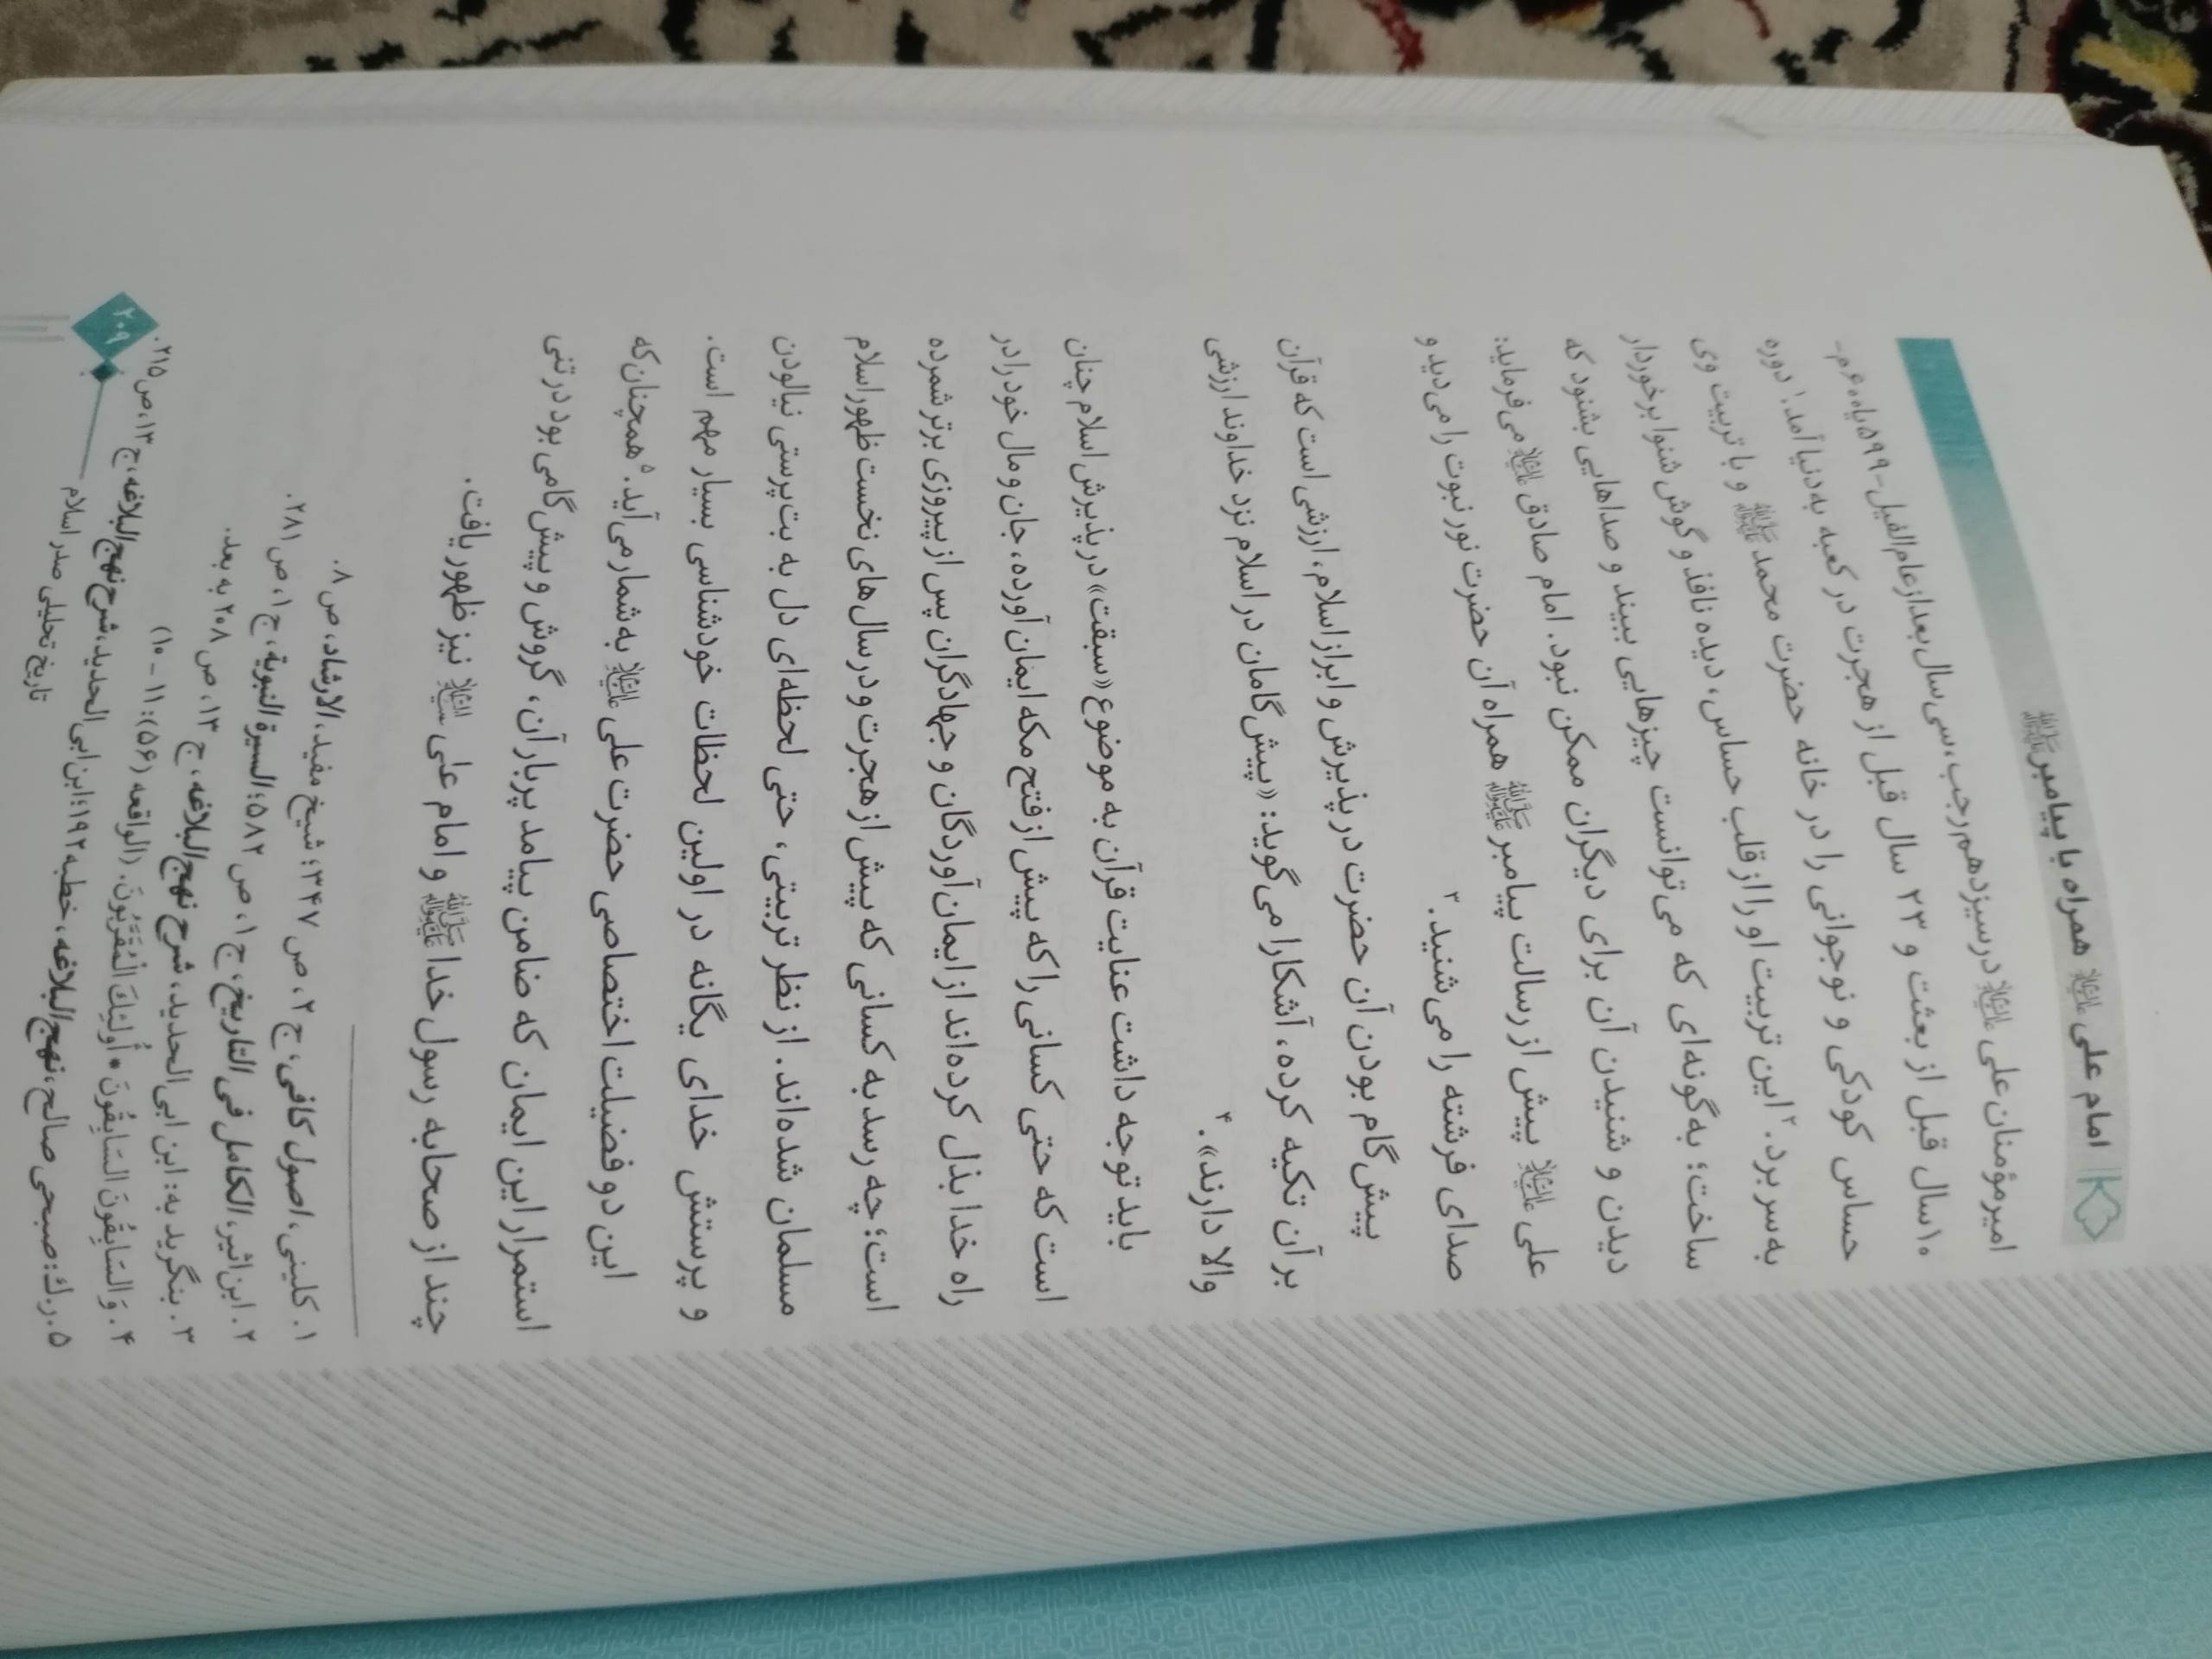 امام علی علیه‌السلام همراه با پیامبر ﷺ
امیر مؤمنان علی علیه‌السلام در سیزدهم رجب، سی سال بعد از عام الفیل - ۵۹۹ یا ۶۰۰ م -
۱۰ سال قبل از بعثت و ۲۳ سال قبل از هجرت در کعبه به دنیا آمد.۱ دوره
حساس کودکی و نوجوانی را در خانه حضرت محمد ﷺ و با تربیت وی
به سر برد.۲ این تربیت او را از قلب حساس، دیده نافذ و گوش شنوا برخوردار
ساخت؛ به گونه‌ای که می‌توانست چیزهایی ببیند و صداهایی بشنود که
دیدن و شنیدن آن برای دیگران ممکن نبود. امام صادق علیه‌السلام می‌فرماید:
علی علیه‌السلام پیش از رسالت پیامبر ﷺ همراه آن حضرت نور نبوت را می‌دید و
صدای فرشته را می‌شنید.۳
پیش‌گام بودن آن حضرت در پذیرش و ابراز اسلام، ارزشی است که قرآن
بر آن تکیه کرده، آشکارا می‌گوید: «پیش‌گامان در اسلام نزد خداوند ارزشی
والا دارند».۴
باید توجه داشت عنایت قرآن به موضوع «سبقت» در پذیرش اسلام چنان
است که حتی کسانی را که پیش از فتح مکه ایمان آورده، جان و مال خود را در
راه خدا بذل کرده‌اند از ایمان‌آوردگان و جهادگران پس از پیروزی برتر شمرده
است؛ چه رسد به کسانی که پیش از هجرت و در سال‌های نخست ظهور اسلام
مسلمان شده‌اند. از نظر تربیتی، حتی لحظه‌ای دل به بت‌پرستی نیالودن
و پرستش خدای یگانه در اولین لحظات خودشناسی بسیار مهم است.
این دو فضیلت اختصاصی حضرت علی علیه‌السلام به شمار می‌آید.۵ همچنان که
استمرار این ایمان که ضامن پیامد پربار آن، گروش و پیش‌گامی بود در تنی
چند از صحابه رسول خدا ﷺ و امام علی علیه‌السلام نیز ظهور یافت.
۱. کلینی، اصول کافی، ج ۲، ص ۳۴۷؛ شیخ مفید، الارشاد، ص ۸.
۲. ابن اثیر، الکامل فی التاریخ، ج ۱، ص ۵۸۲؛ السیرة النبویة، ج ۱، ص ۲۸۱.
۳. بنگرید به: ابن ابی الحدید، شرح نهج البلاغه، ج ۱۳، ص ۲۰۸ به بعد.
۴. وَ السَّابِقُونَ السَّابِقُونَ * أُولَئِكَ الْمُقَرَّبُونَ. (الواقعه (۵۶): ۱۱ - ۱۰)
۵. ر.ك: صبحی صالح، نهج البلاغه، خطبه ۱۹۲؛ ابن ابی الحدید، شرح نهج البلاغه، ج ۱۳، ص ۲۱۵.
تاریخ تحلیلی صدر اسلام
۲۰۹